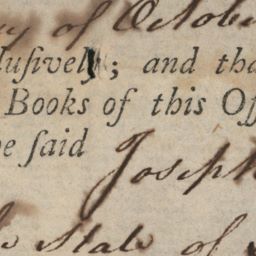 y of Octob
lusively; and tha
Books of this Off
e ſaid Joseph
e State of